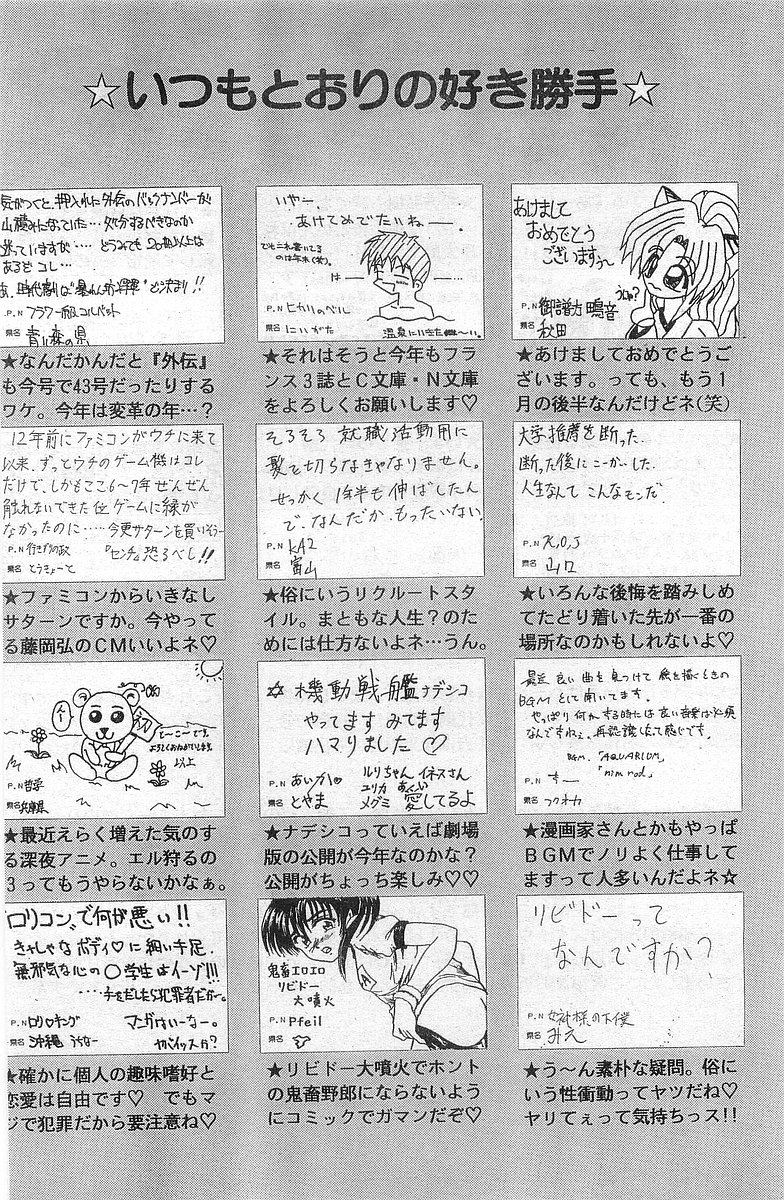 ☆いつもとおりの好き勝手☆
気がつくと、押入れに外伝のバックナンバーが
山積みになっていた…処分するべきなのか
迷っていますが…どうみても20冊以上は
あるぞコレ…
P.N フラワー
県名 青い森の県
★なんだかんだと『外伝』
も今号で43号だったりする
ワケ。今年は変革の年…?
いやー、
あけてめでたいねー。
でもこれ書いてる
のは年末(笑)。
はー
P.N ヒカリのベル
県名 にいがた
温泉にいきた〜い。
★それはそうと今年もフラ
ンス3誌とC文庫・N文庫
をよろしくお願いします♡
あけまして
おめでとう
ございますぅ〜
P.N
県名 秋田
★あけましておめでとうご
ざいます。っても、もう1
月の後半なんだけどネ(笑)
12年前にファミコンがウチに来て
以来、ずっとウチのゲーム機はコレ
だけで、しかもここ6〜7年ぜんぜん
触れないできた位ゲームに縁が
なかったのに……今更サターンを買いそう…
『センチ』恐るべし!!
P.N 行きずりの政
県名 とうきょーと
★ファミコンからいきなし
サターンですか。今やって
る藤岡弘のCMいいよネ♡
そろそろ就職活動用に
髪を切らなきゃなりません。
せっかく1年半も伸ばしたん
で、なんだかもったいない。
P.N KAZ
県名 富山
★俗にいうリクルートスタ
イル。まともな人生?のた
めには仕方ないよネ…うん。
大学推薦を断った。
断った後にこーかいした。
人生なんてこんなモンだ。
P.N K,O,J
県名 山口
★いろんな後悔を踏みしめ
てたどり着いた先が一番の
場所なのかもしれないよ♡
初
どーこーです。
よろしくおねがいします。
以上
P.N 哲学
県名 兵庫県
★最近えらく増えた気のす
る深夜アニメ。エル狩るの
3ってもうやらないかなぁ。
☆機動戦艦ナデシコ
やってます みてます
ハマりました♡
P.N あいか
県名 とやま
ルリちゃん イネスさん
ユリカ
メグミ 愛してるよ
★ナデシコっていえば劇場
版の公開が今年なのかな?
公開がちょっち楽しみ♡♡
最近良い曲を見つけて絵を描くときの
BGMとして聞いてます。
やっぱり何かする時には良い音楽は必須
なんですねぇ。再認識したって感じです。
BGM.「AQUARIUM」
「nimrod」
P.N ちー
県名 フクオカ
★漫画家さんとかもやっぱ
BGMでノリよく仕事して
ますって人多いんだよネ☆
鬼畜エロエロ
リビドー
大噴火
P.N Pfeil
県名
★リビドー大噴火でホント
の鬼畜野郎にならないよう
にコミックでガマンだぞ♡
リビドーって
なんですか?
P.N 女神様の下僕
県名 みえ
★う〜ん素朴な疑問。俗に
いう性衝動ってヤツだね♡
ヤリてぇって気持ちっス!!